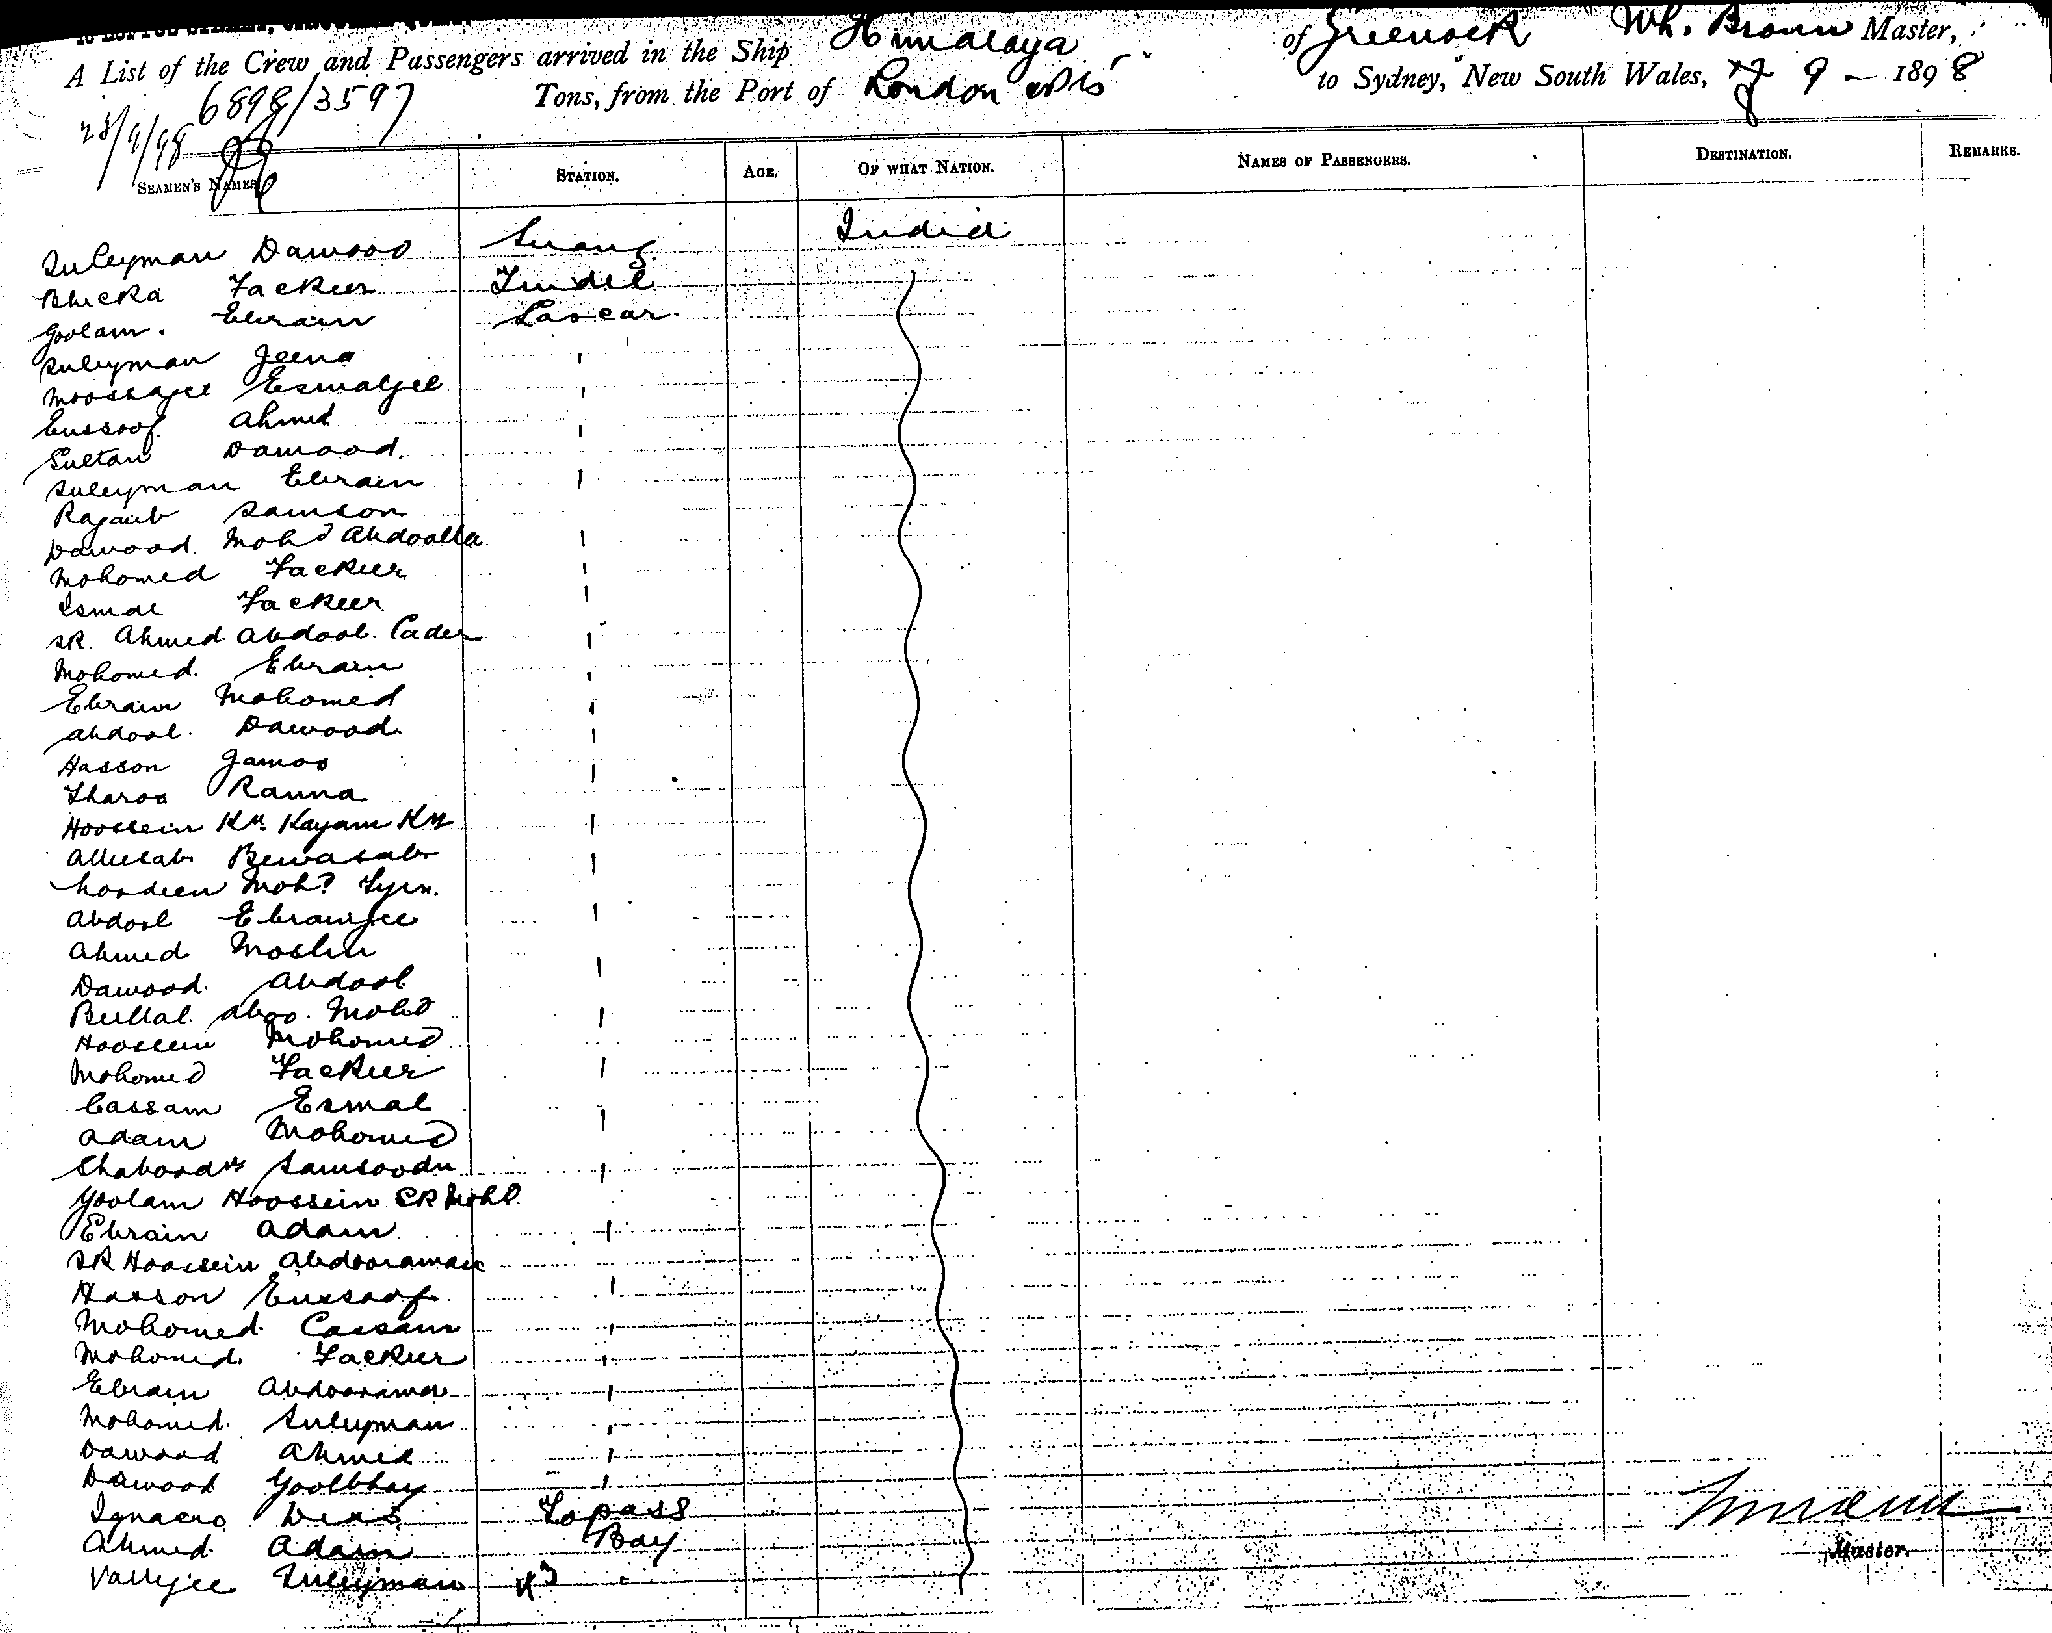 A List of the Crew and Passengers arrived in the Ship Himalaya of Greenock Wh. Brown Master,
6898/3597 Tons, from the Port of London to Sydney, New South Wales, 9 - 1898
28/9/98
SEAMEN'S NAMES STATION. AGE. OF WHAT NATION. NAMES OF PASSENGERS. DESTINATION. REMARKS.
Suleyman Dawood Serang India
Bhicka Fackeer Tindel
Goolam. Ebraim Lascar.
Suleyman Jeena
Moossajee Esmaljee
Eussoof Ahmed
Sultan Dawood.
Suleyman Ebraim
Rajaub Samson
Dawood. Mohd Abdoolla
Mohomed Fackeer
Esmal Fackeer
SK. Ahmed Abdool. Cader
Mohomed. Ebraim
Ebraim Mohomed
Abdool. Dawood.
Hasson Jamoo
Tharoo Ranna
Hoossein Kn. Kayam Kn
Alleesab Bewasab
Noordeen Mohd
Abdool Ebramjee
Ahmed Moslin
Dawood. Abdool
Bullal. Aboo. Mohd
Hoossein Mohomed
Mohomed Fackeer
Cassam Esmal
Adam Mohomed
Samsoodn
Goolam Hoossein SK Mohd.
Ebraim Adam
SK Hoossein Abdooraman
Hasson Eussoof
Mohomed. Cassam
Mohomed. Fackeer
Ebraim Abdoorama
Mohomed. Suleyman
Dawood Ahmed
Dawood Goolbhay
Ignacio Dias Topass
Ahmed. Adam Bay
Vallyjee Suleyman
Master.